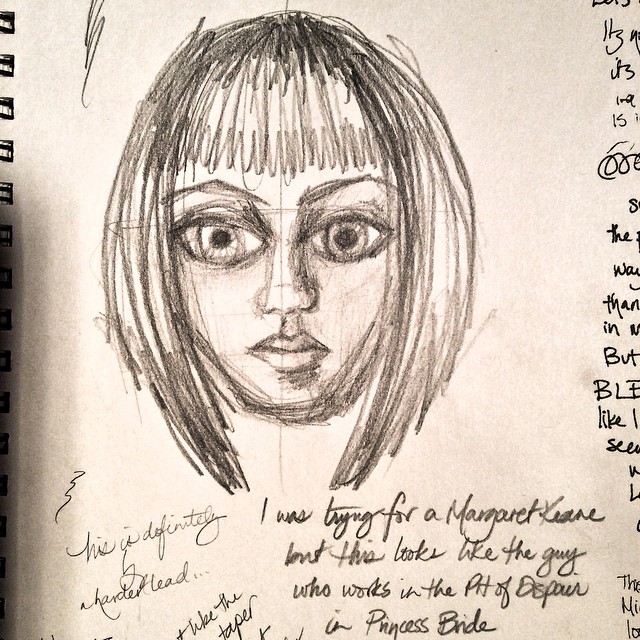 I was trying for a Margaret Keane
but this looks like the guy
who works in the Pit of Despair
in Princess Bride
This is definitely
a harder lead...
like the
taper
Its
its
is
the
way
than
in
But
BLE
like I
seem
The
Mi